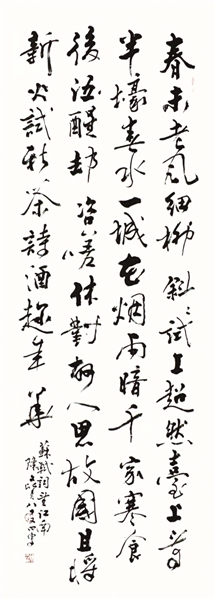 春未老風細柳斜〻試上超然臺上看
半壕春水一城花烟雨暗千家寒食
後酒醒却咨嗟休對故人思故國且將
新火試新茶詩酒趁年華
蘇軾詞望江南